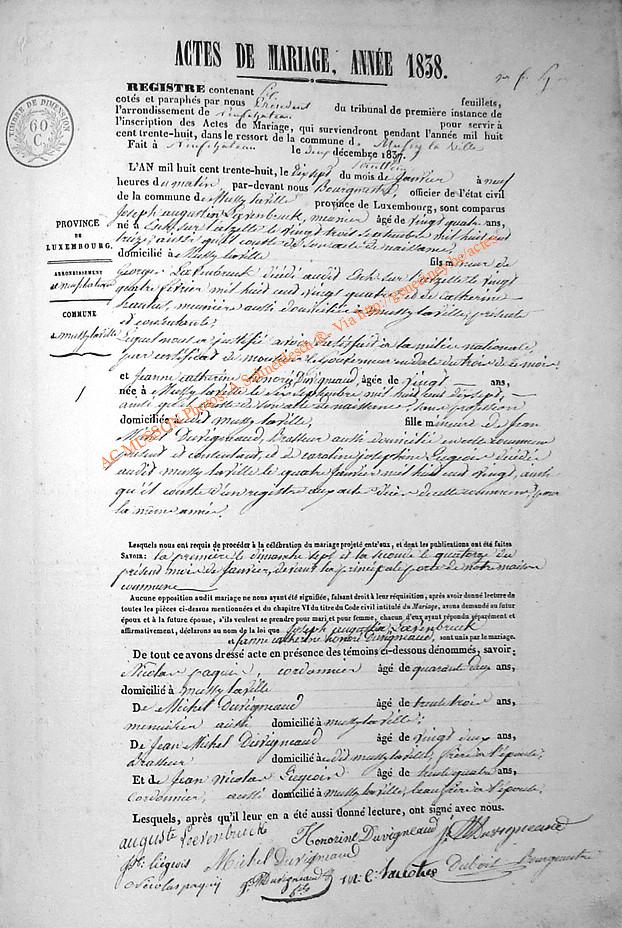 ACTES DE MARIAGE, ANNÉE 1838.
TIMBRE DE DIMENSION
60
C.
REGISTRE contenant six feuillets,
cotés et paraphés par nous Président du tribunal de première instance de
l'arrondissement de Neufchateau pour servir à
l'inscription des Actes de Mariage, qui surviendront pendant l'année mil huit
cent trente-huit, dans le ressort de la commune de Mussy la ville
Fait à Neufchateau le deux décembre 1837.
L'AN mil huit cent trente-huit, le dix sept du mois de Janvier à neuf
heures du matin par-devant nous Bourgmestre, officier de l'état civil
de la commune de Mussy la ville province de Luxembourg, sont comparus
Joseph augustin Loevenbruck, meunier âgé de vingt quatre ans,
né à Esch sur l'alzette le vingt trois mil huit cent
treize, ainsi qu'il conste de son acte de naissance,
domicilié à Mussy la ville fils mineur de
PROVINCE
DE
LUXEMBOURG.
ARRONDISSEMENT
de neufchateau
COMMUNE
de mussy la ville
1
George Loevenbruck décédé audit Esch sur l'alzette le vingt
quatre février mil huit cent vingt quatre, et de catherine
meunière aussi domiciliée à mussy la ville, présente
et consentante;
Lequel nous a justifié avoir satisfait à la milice nationale,
par certificat de monsieur le gouverneur en date du trois de ce mois,
et Jeanne catherine honoré Duvigneaud, âgée de vingt ans,
née à Mussy la ville le six septembre mil huit cent dix sept,
ainsi qu'il conste de son acte de naissance, sans profession
domiciliée audit mussy la ville, fille mineure de Jean
Michel Duvigneaud, Brasseur aussi domicilié en cette commune
présent et consentant, et de caroline josephine décédée
audit mussy la ville le quatre février mil huit cent vingt, ainsi
qu'il conste d'un registre aux actes de cette commune pour
la même année.
Lesquels nous ont requis de procéder à la célébration du mariage projeté entr'eux, et dont les publications ont été faites
SAVOIR: la première le dimanche sept et la seconde le quatorze du
présent mois de Janvier, devant la principale porte de notre maison
commune
Aucune opposition audit mariage ne nous ayant été signifiée, faisant droit à leur réquisition, après avoir donné lecture de
toutes les pièces ci-dessus mentionnées et du chapitre VI du titre du Code civil intitulé du Mariage, avons demandé au futur
époux et à la future épouse, s'ils veulent se prendre pour mari et pour femme, chacun d'eux ayant répondu séparément et
affirmativement, déclarons au nom de la loi que Joseph augustin Loevenbruck
et Jeanne catherine honoré Duvigneaud, sont unis par le mariage.
De tout ce avons dressé acte en présence des témoins ci-dessous dénommés, savoir:
Nicolas paquin, cordonnier âgé de quarante deux ans,
domicilié à mussy la ville
De Michel Duvigneaud âgé de trente trois ans,
menuisier aussi domicilié à mussy la ville;
De Jean Michel Duvigneaud âgé de vingt deux ans,
Brasseur domicilié à dit mussy la ville, frère à l'épouse;
Et de Jean nicolas âgé de trente quatre ans,
cordonnier, aussi domicilié à mussy la ville, beau frère à l'épouse
Lesquels, après qu'il leur en a été aussi donné lecture, ont signé avec nous.
auguste Loevenbruck Honorine Duvigneaud J. M. Duvigneaud
liégeois Michel Duvigneaud
Nicolas paquin J. M. Duvigneaud fils Dubois Bourgmestre
AC MUSSON Photos: A Schneidesch ®. Via http://geneanet.be/actes